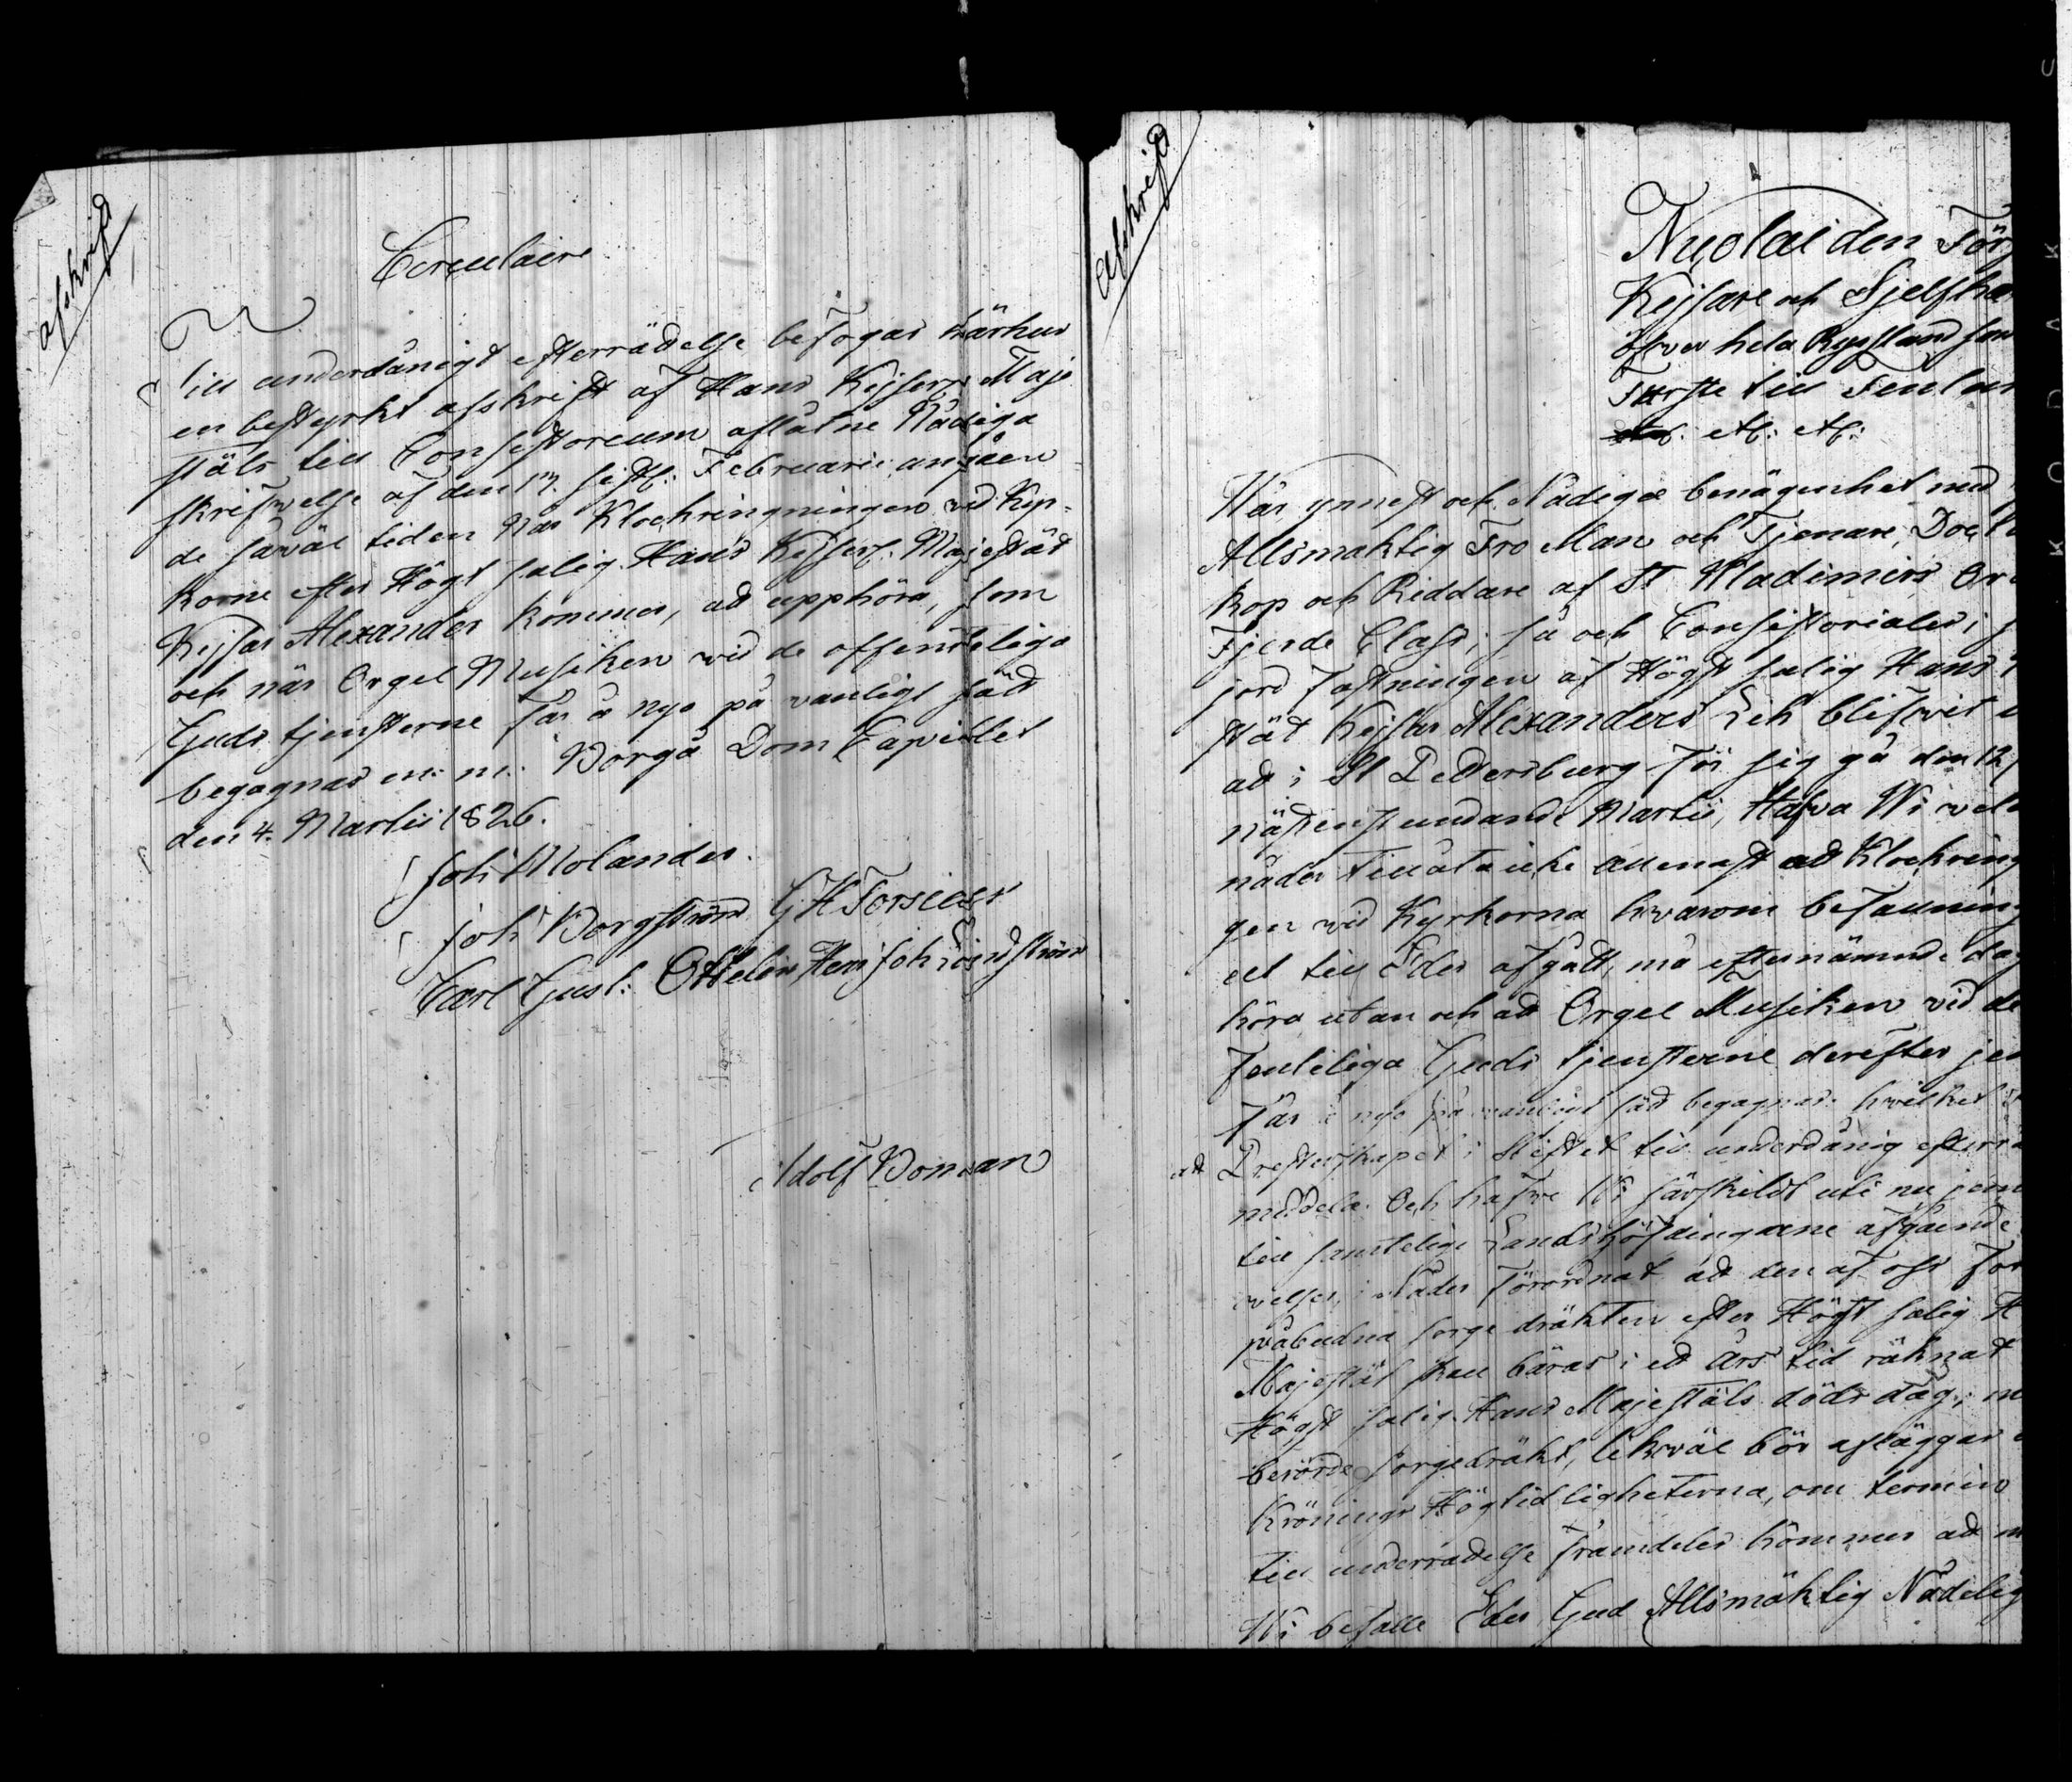 afskrift
Circulaire
Till underdånigt efterrädelse befogas härhus
en bestyrkt afskrift af Hans Kejserl: Maje
stäts till Consistorium aflåtne Nådiga
skrifwelse af den 17. sistl: Februarii angåen
de såwäl tiden när Klockringningen wid Kyr-
korne efter Högst salig Hans Kejserl. Majestät
Kejsar Alexander kommer, att upphöra, som
och när Orgel Musiken wid de offenteliga
Guds tjensterne får å nyo på vanligt sätt
begagnas m: m: Borgå Dom Capitlet
den 4. Martii 1826.
Joh: Molander.
Joh: Borgström G H Forsius
Carl Gust: Ottelin Henr Joh Lindström
Adolf Boman
Afskrift
Nicolai den För
Kejsare och Sjelfhe
öfwer hela Ryssland sam
Furste till Finlan
etc: etc:
Wår ynnest och Nådiga benägenhet med
Allsmäktig Tro Man och Tjenare, Doct
kop och Riddare af St Wladimirs Or
Fjerde Class; så och Consistoriales;
jord fästningen af Högst salig Hans
stät Kejsar Alexanders Lik blifwit u
att i St Pettersburg för sig gå den 12/
nästinstundande Martii, Hafva Wi vela
nåder tillåta icke allenast att Klockring
gen wid Kyrkorna hvarom befallning
el till Eder afgått, må efternämnde dag
höra utan och att Orgel Musiken vid de
fenteliga Guds tjensterne derefter jem
får å nyo på vanligt sätt begagnas: hvilket
att Presterskapet i Stiftet till underdånig efterrä
meddela. Och hafwe Wi särskildt uti nu jem
till samtelige Landshöfdingarne afgående
welser, i Nåder förordnat att den af oss för
påbudna sorge dräkten efter Högst salig H
Majestät skall bäras i ett års tid räknat
Högst salig Hans Majestäts döds dag; m
berörde sorgedräkt, likwäl bör afläggas
Krönings Högtidligheterna, om termin
till underrädelse framdeles kommer att m
Wi befalle Eder Gud Allsmäktig Nådelig
KODAK S